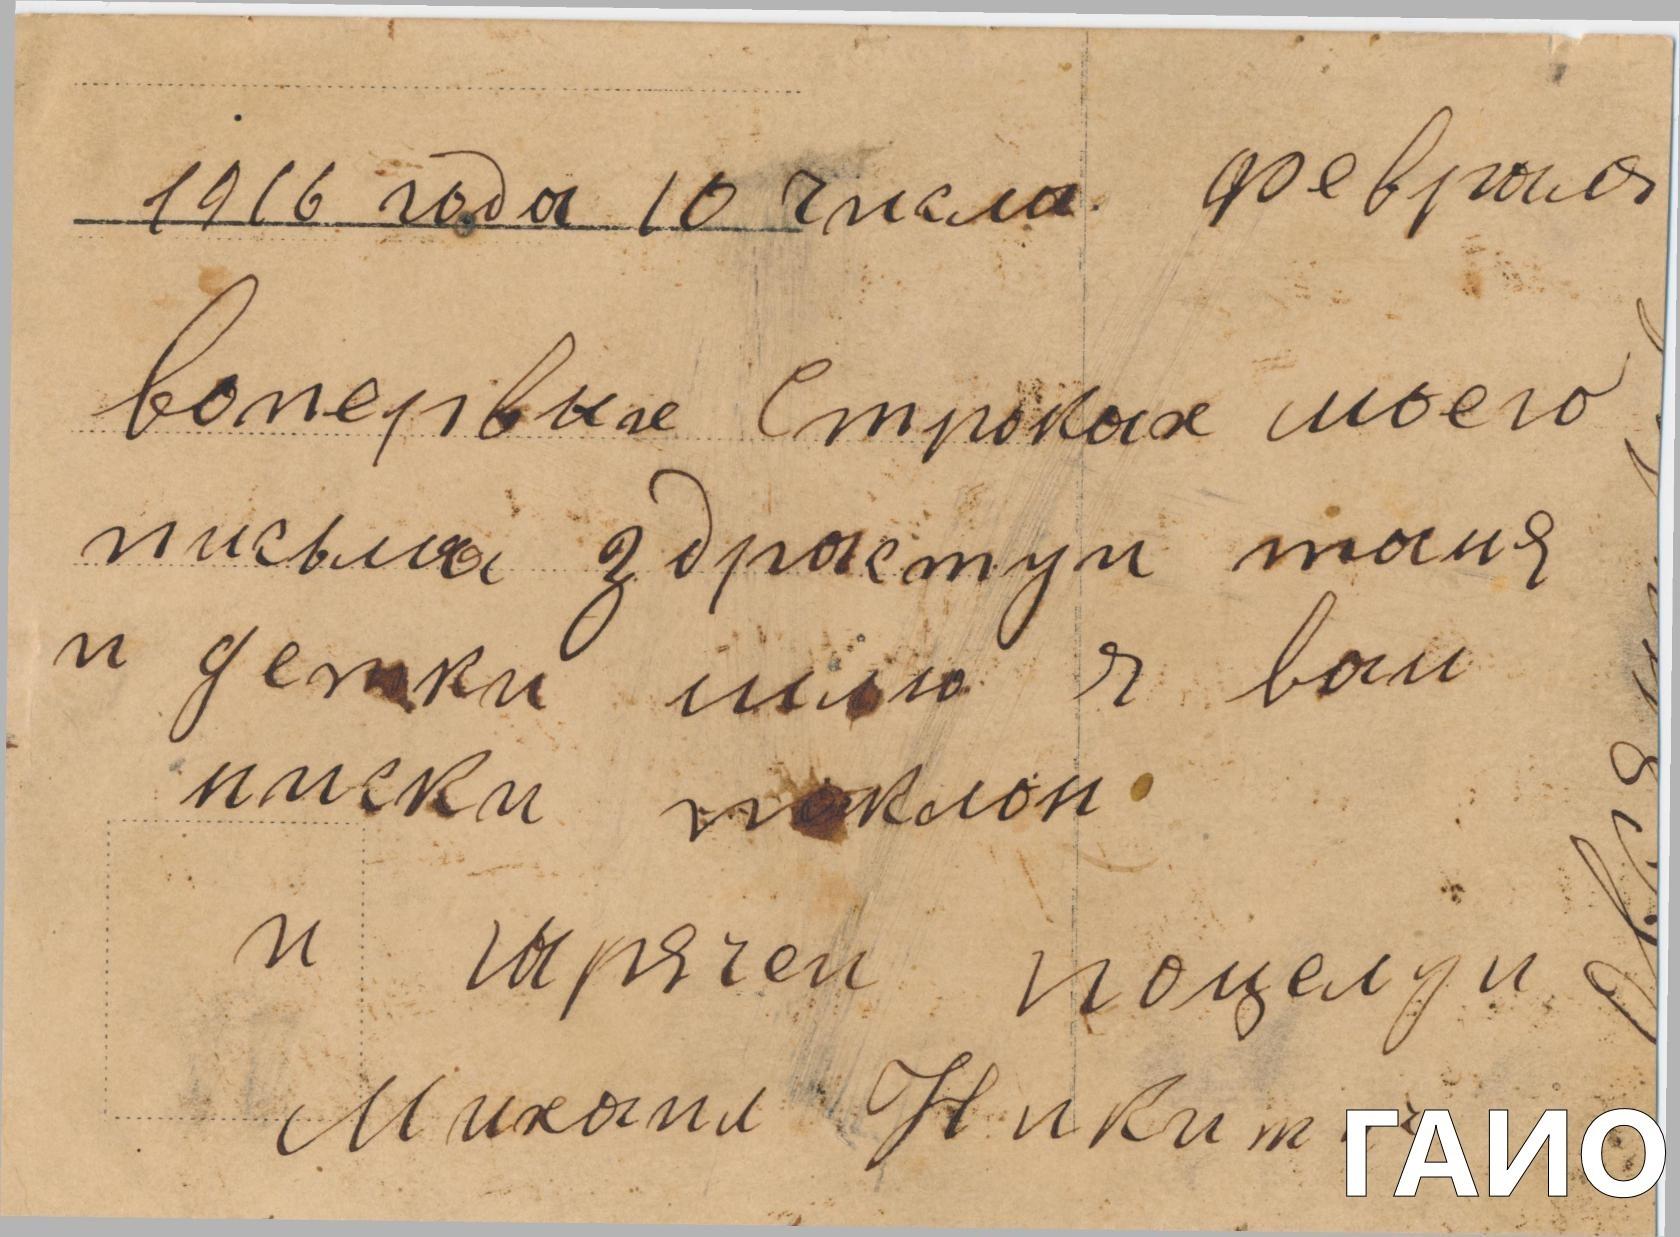 1916 года 10 числа. февраля
вопервых строках моего
письма здрастуи таня
и детки шлю я вам
ниски поклон
и гарячеи поцелуи
Михаил
ГАИО